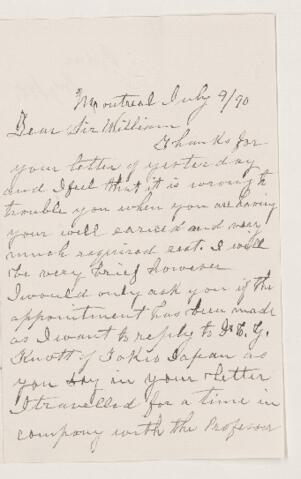 Montreal July 9/90
Dear Sir William
Thanks for
your letter of yesterday
and I feel that it is wrong to
trouble you when you are having
your well earned and very
much required rest. I will
be very brief however
I would only ask you if the
appointment has been made
as I want to reply to Dr C. G.
Knott of Tokio Japan as
you say in your letter
I travelled for a time in
company with the Professor